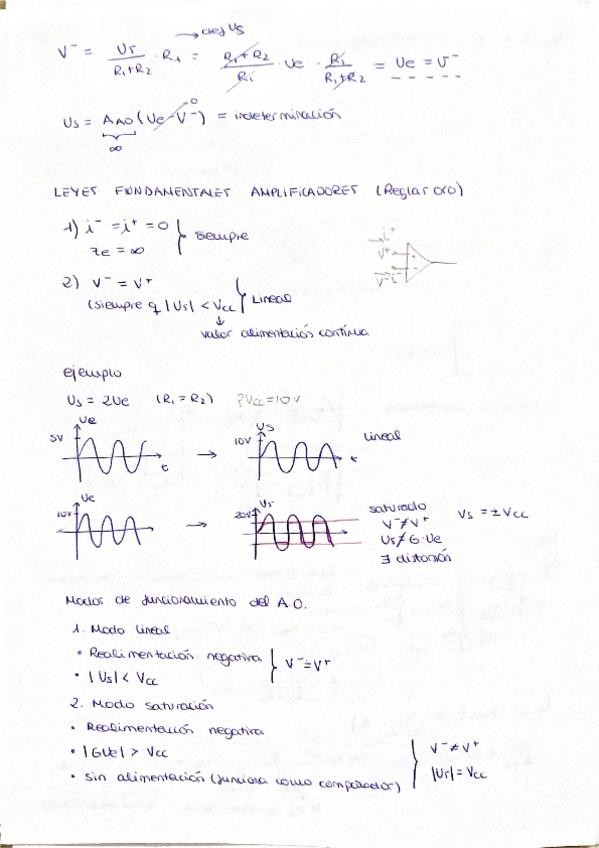 → dej Us
V⁻ = Us / (R₁+R₂) · R₁ = (R₁+R₂) / R₁ · Ue · R₁ / (R₁+R₂) = Ue = V⁻
Us = A_AO (Ue - V⁻)⁰ = indeterminación
∞
LEYES FUNDAMENTALES AMPLIFICADORES (Reglas oro)
1) i⁻ = i⁺ = 0 } siempre
Ze = ∞
i⁺
V⁺ +
V⁻ i⁻ -
2) V⁻ = V⁺ } Lineal
(siempre q |Us| < Vcc
↓
valor alimentación contínua
ejemplo
Us = 2Ue (R₁ = R₂) ?Vcc = 10V
Ue
5V
t
→
Us
10V
t
Lineal
Ue
10V
→
Us
20V
saturado
V⁻ ≠ V⁺
Us ≠ G·Ue
∃ distorsión
Vs = ± Vcc
Modos de funcionamiento del A.O.
1. Modo lineal
• Realimentación negativa } V⁻ = V⁺
• |Us| < Vcc
2. Modo saturación
• Realimentación negativa
• |GUe| > Vcc } V⁻ ≠ V⁺
• sin alimentación (funciona como comparador) |Us| = Vcc